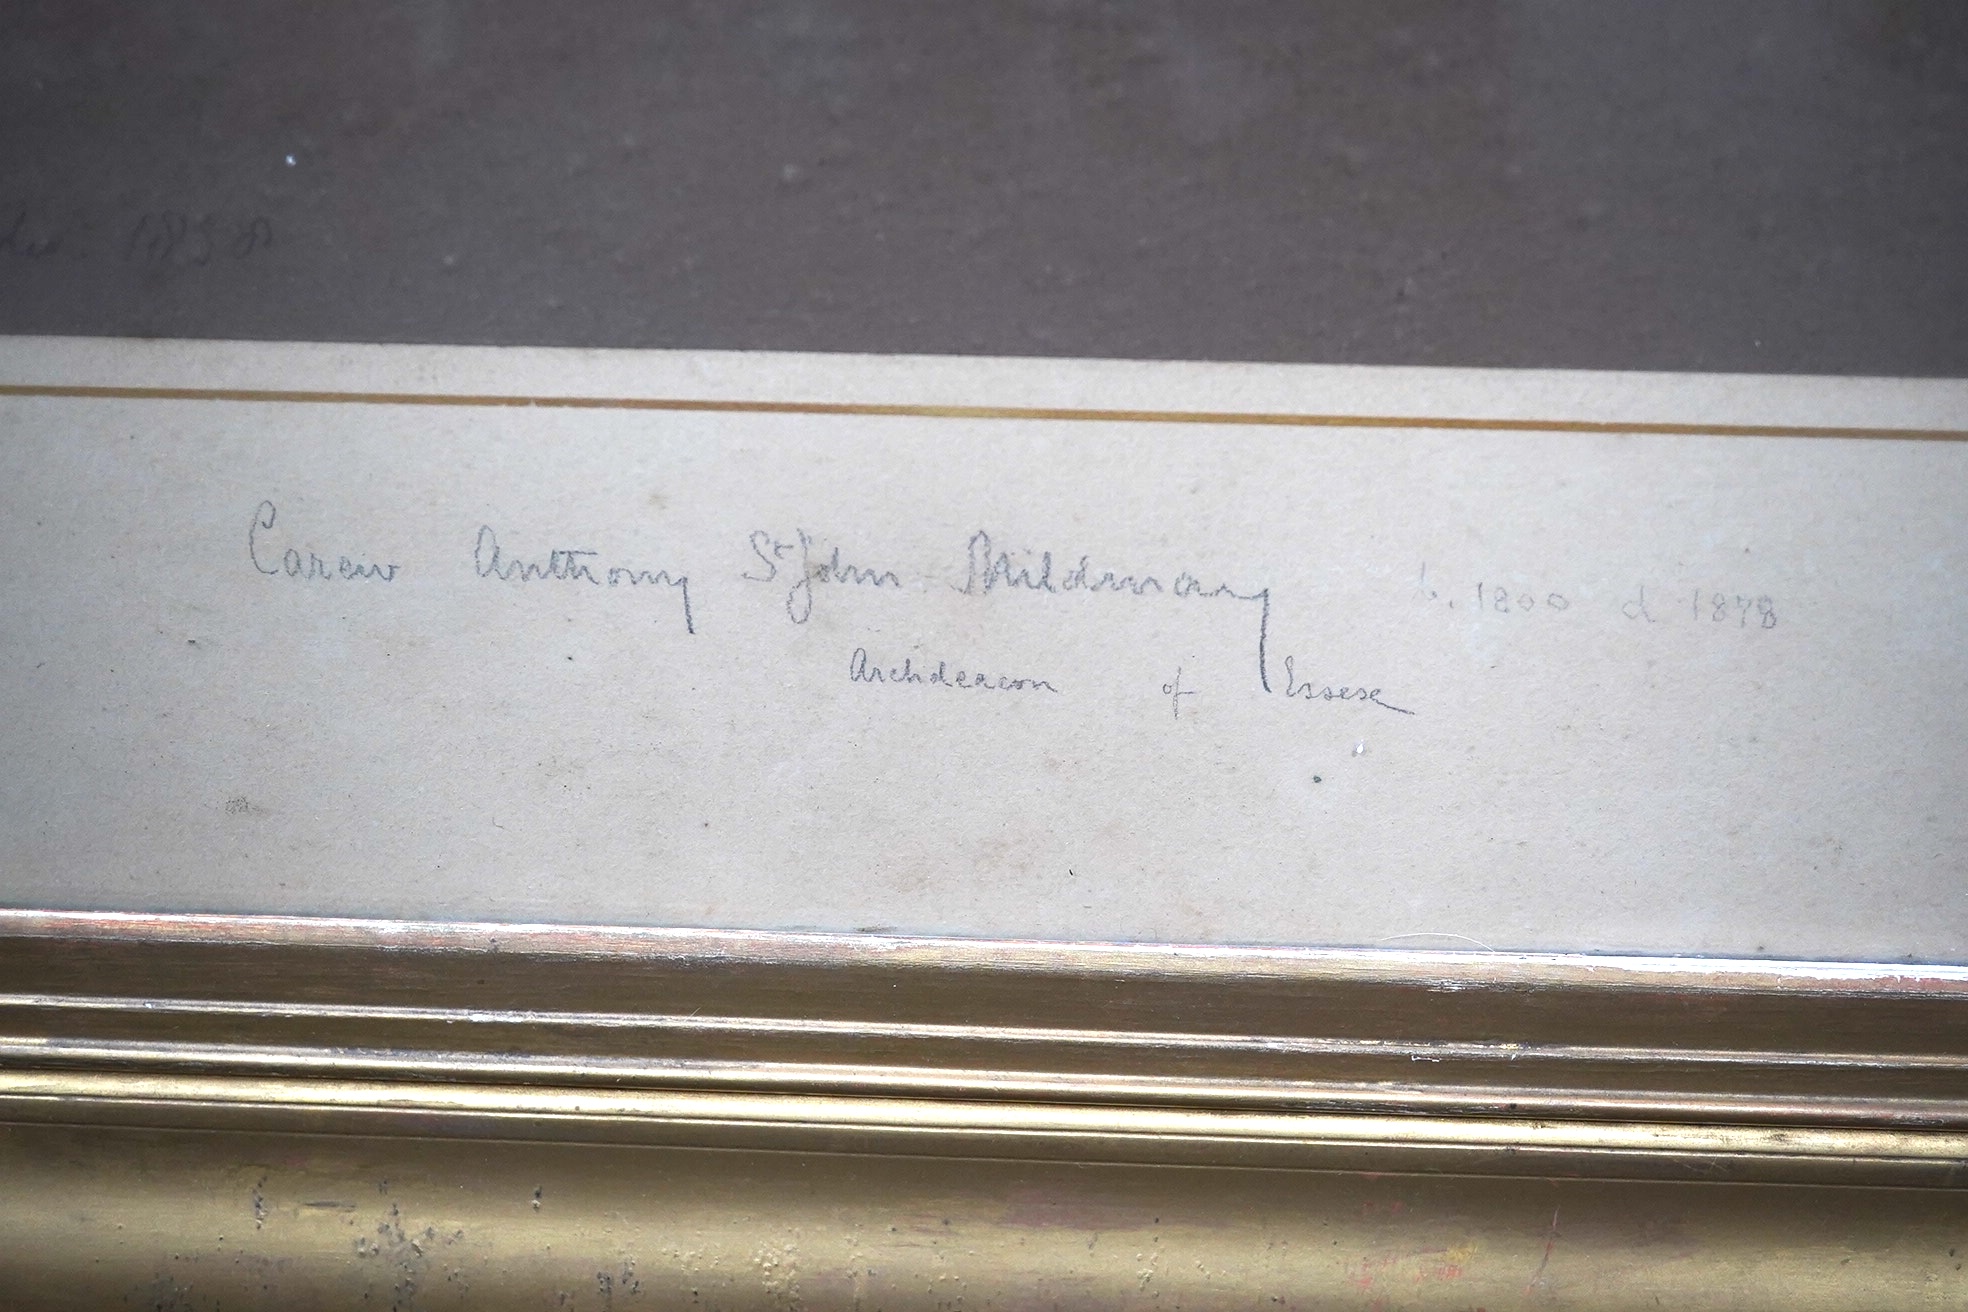 1858
Carew Anthony St John Mildmay b. 1800 d 1878
Archdeacon of Essex